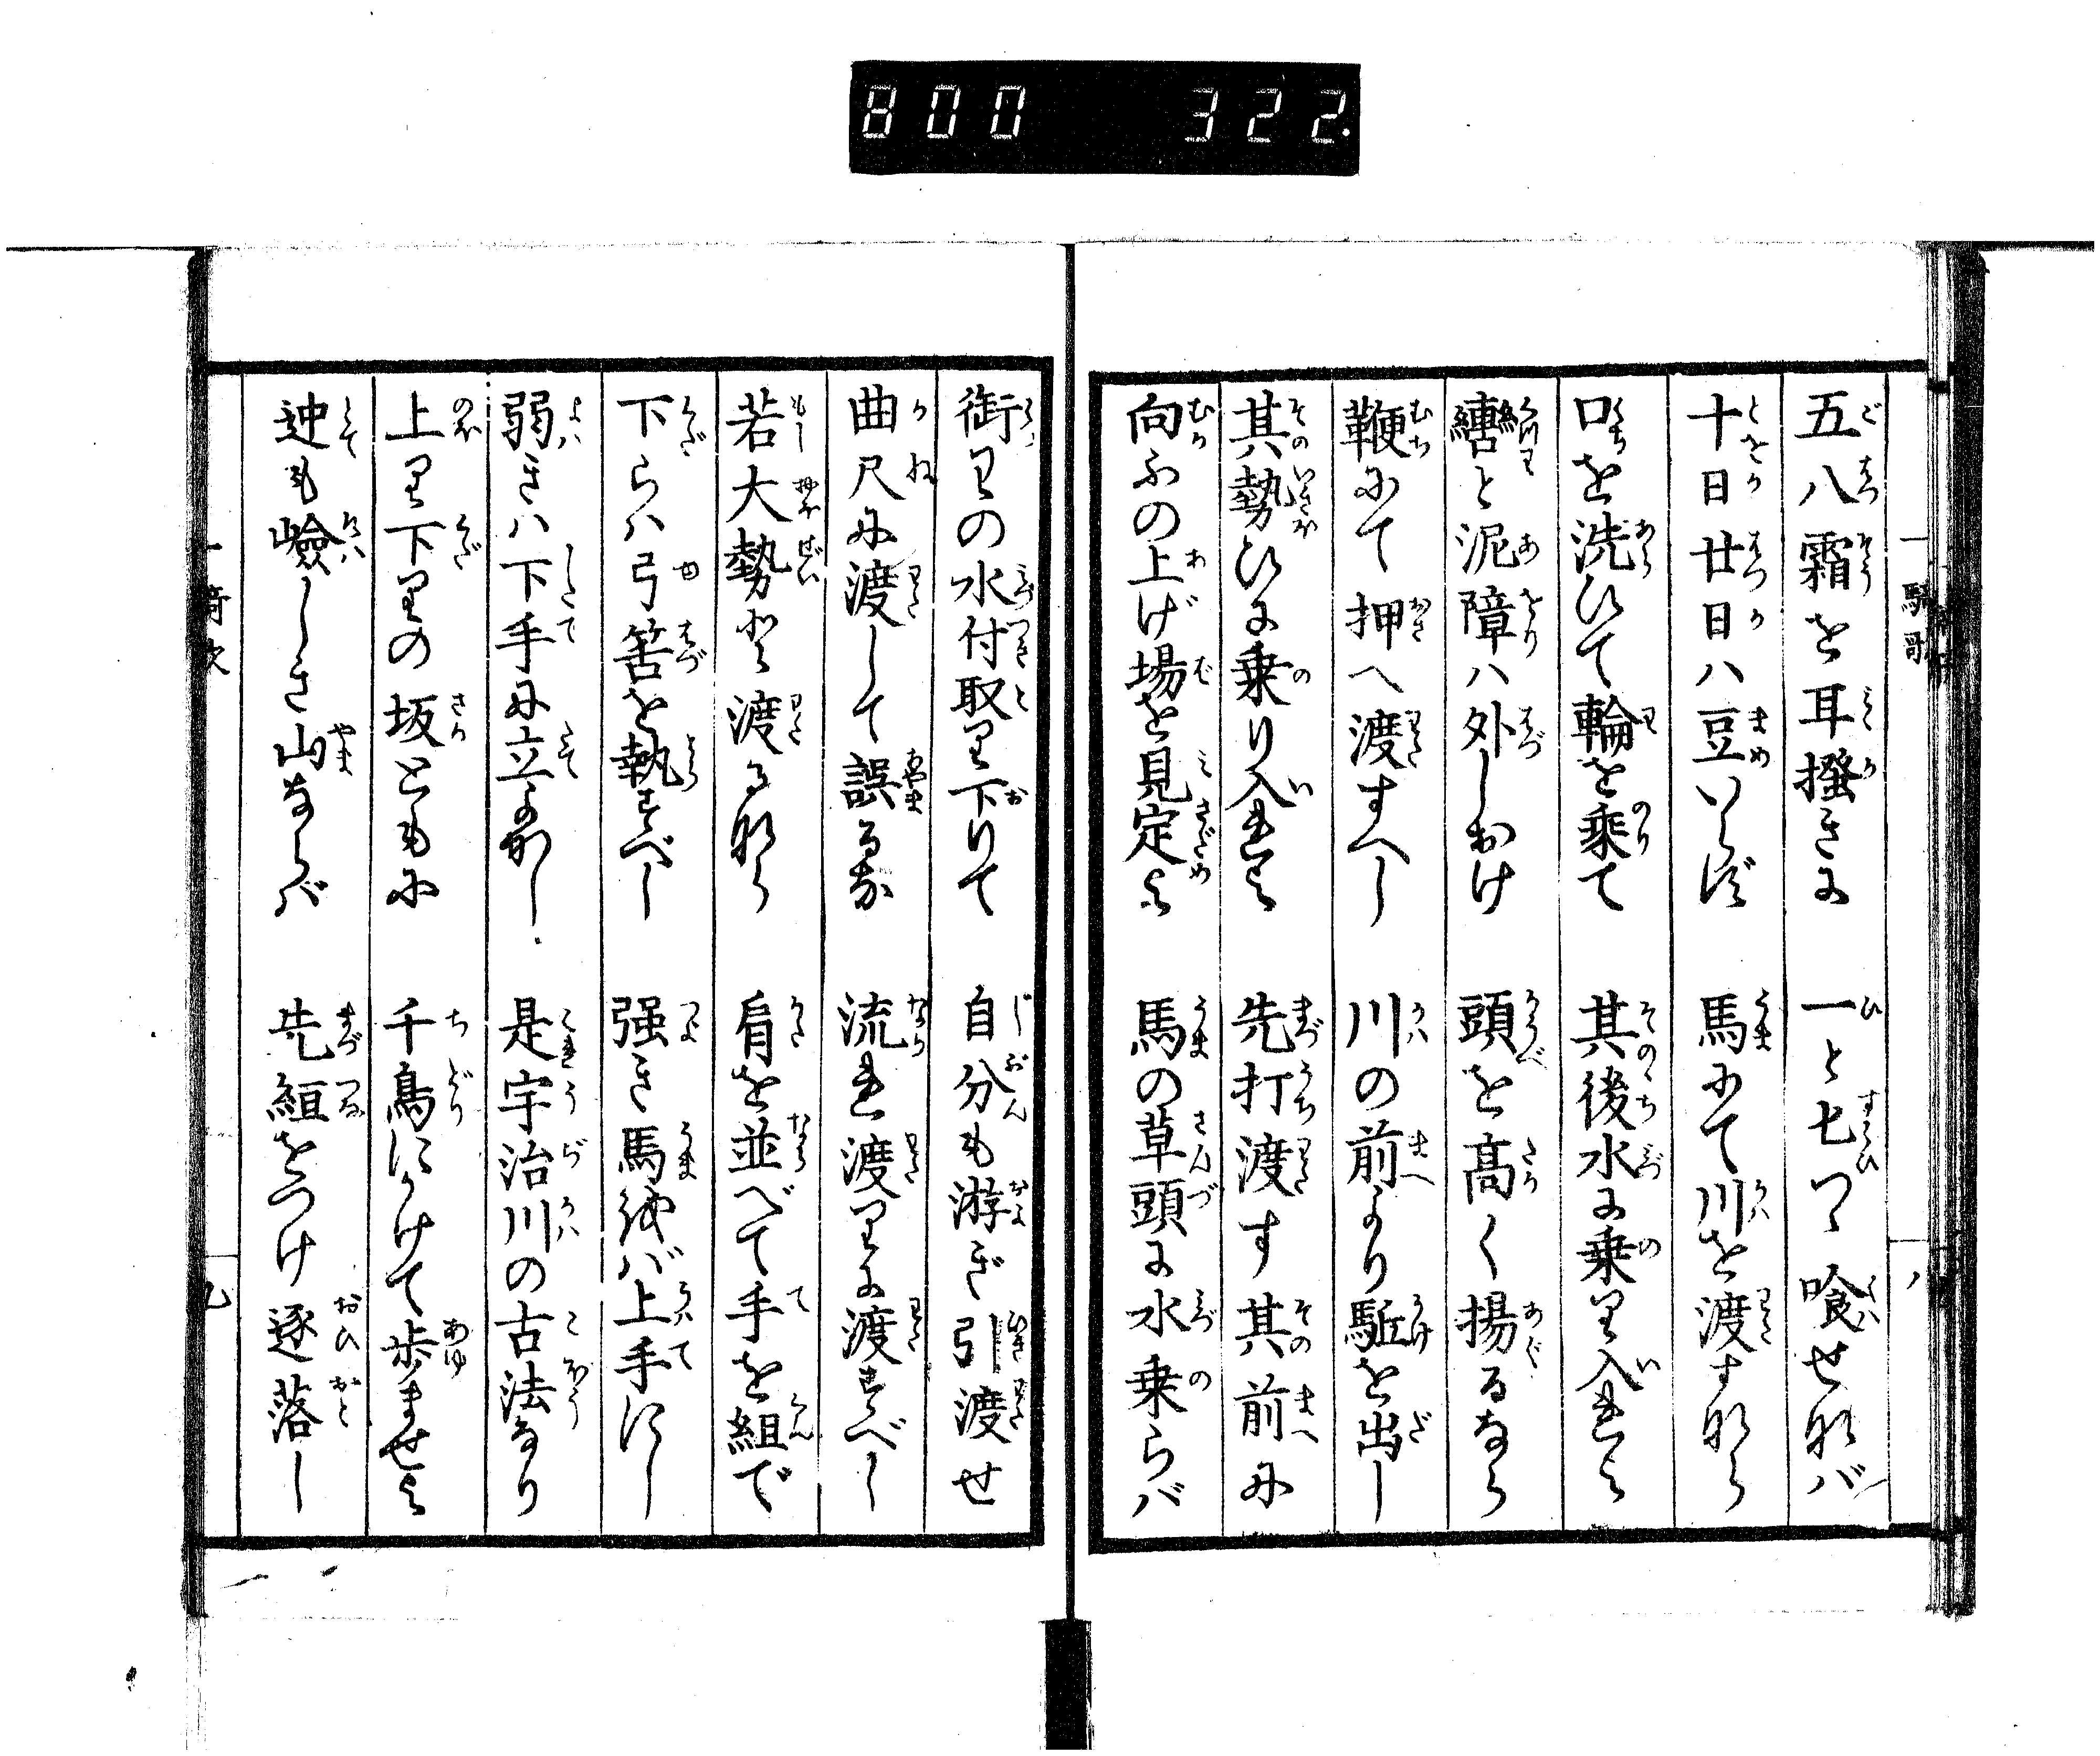 800 322.
騎哥
五八霜を耳掻きに 一と七ツヽ喰せなバ
十日廿日ハ豆いらず 馬にて川を渡すなら
口を洗ひて輪を乗て 其後水に乗り入れよ
轡と泥障ハ外しおけ 頭を高く揚るなら
鞭にて押へ渡すへし 川の前より駈を出し
其勢ひに乗り入れよ 先打渡す其前に
向ふの上げ場を見定よ 馬の草頭に水乗らバ
衘りの水付取り下りて 自分も游ぎ引渡せ
曲尺に渡して誤るな 流れ渡りに渡すべし
若大勢で渡るなら 肩を並べて手を組で
下らハ弓筈を執すべし 强き馬をバ上手にし
弱きハ下手に立よかし 是宇治川の古法なり
上り下りの坂ともに 千鳥にかけて歩ませよ
迚も嶮しき山ならバ 先組をつけ逐落し
九